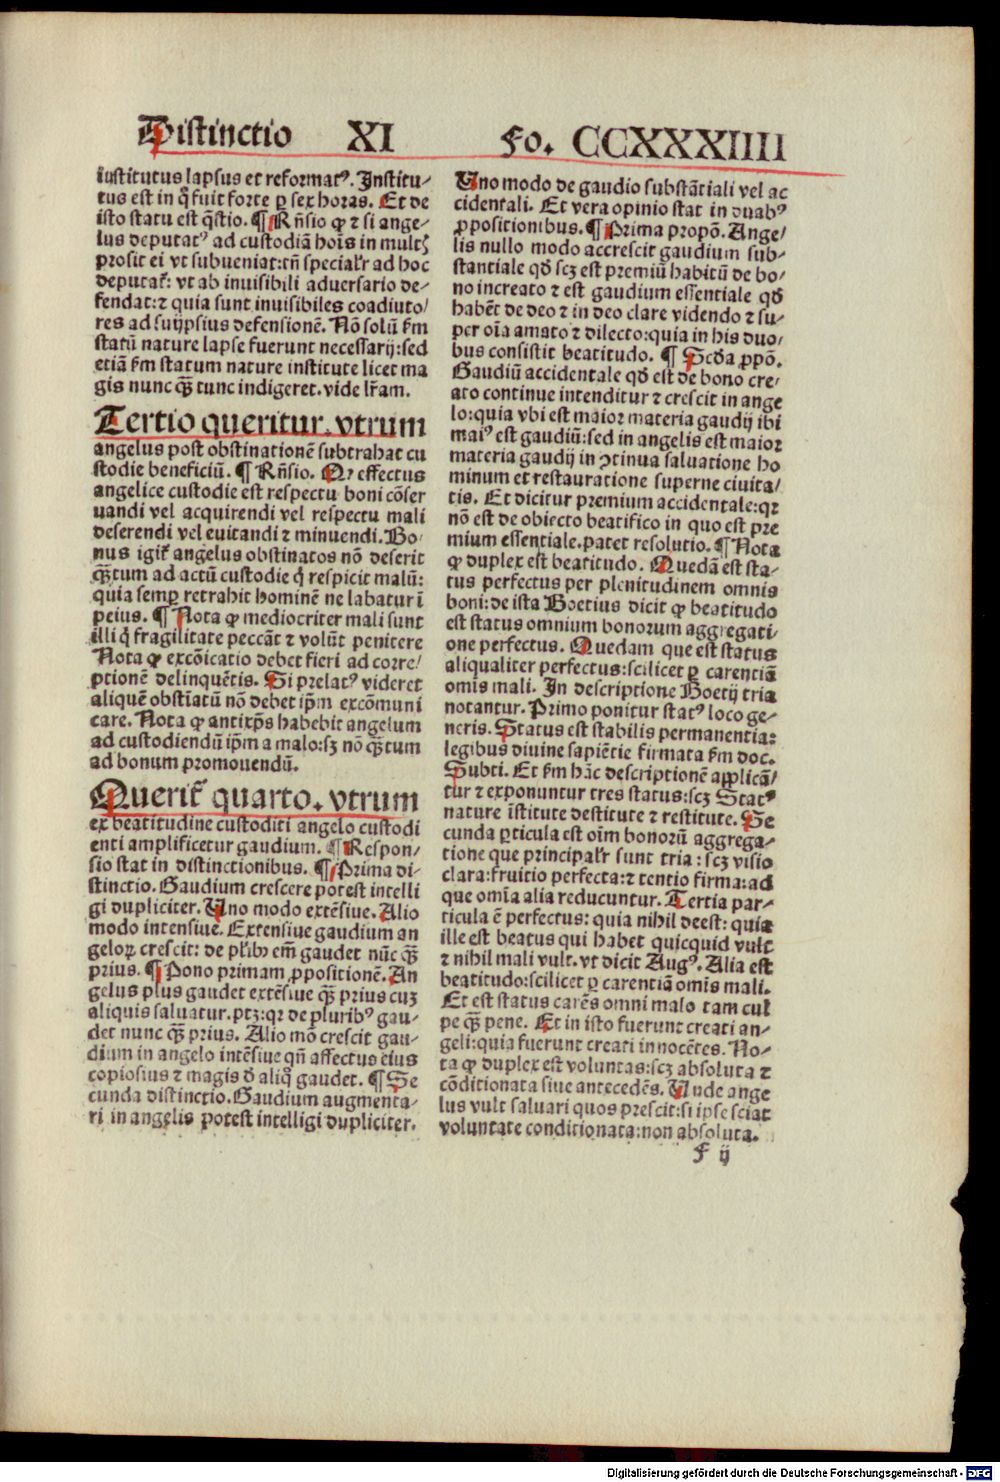 Distinctio XI Fo. CCXXXIIII
institutus lapsus et reformatꝰ. Institu-
tus est in q̃ fuit forte ꝑ sex horas. Et de
isto statu est q̃stio. ¶ Rñsio ꝙ ⁊ si ange-
lus deputatꝰ ad custodiã hoĩs in multꝭ
prosit ei vt subueniat: tñ specialr̃ ad hoc
deputat̃: vt ab inuisibili aduersario de-
fendat: ⁊ quia sunt inuisibiles coadiuto/
res ad suijpsius defensionẽ. Nõ solũ ẜm
statũ nature lapse fuerunt necessarij: sed
etiã ẜm statum nature institute licet ma
gis nunc qȝ̃ tunc indigeret. vide lr̃am.
Tertio queritur. vtrum
angelus post obstinationẽ subtrahat cu
stodie beneficiũ. ¶ Rñsio. Qꝛ effectus
angelice custodie est respectu boni cõser
uandi vel acquirendi vel respectu mali
deserendi vel euitandi ⁊ minuendi. Bo-
nus igit̃ angelus obstinatos nõ deserit
qȝ̃tum ad actũ custodie q̃ respicit malũ:
quia semꝑ retrahit hominẽ ne labatur ĩ
peius. ¶ Nota ꝙ mediocriter mali sunt
illi q̃ fragilitate peccãt ⁊ volũt penitere
Nota ꝙ excõicatio debet fieri ad corre/
ptionẽ delinquẽtis. Si prelatꝰ videret
aliquẽ obstĩatũ nõ debet ip̃m excõmuni
care. Nota ꝙ antixp̃s habebit angelum
ad custodiendũ ip̃m a malo: sȝ nõ qȝ̃tum
ad bonum promouendũ.
Querit̃ quarto. vtrum
ex beatitudine custoditi angelo custodi
enti amplificetur gaudium. ¶ Respon/
sio stat in distinctionibus. ¶ Prima di-
stinctio. Gaudium crescere potest intelli
gi dupliciter. Uno modo extẽsiue. Alio
modo intensiue. Extensiue gaudium an
geloꝝ crescit: de pl'ibꝰ em̃ gaudet nũc qȝ̃
prius. ¶ Pono primam ꝓpositionẽ. An
gelus plus gaudet extẽsiue qȝ̃ prius cuȝ
aliquis saluatur. ptȝ: qꝛ de pluribꝰ gau-
det nunc qȝ̃ prius. Alio mõ crescit gau-
dium in angelo intẽsiue qñ affectus eius
copiosius ⁊ magis d̃ aliq̃ gaudet. ¶ Se
cunda distinctio. Gaudium augmenta-
ri in angelis potest intelligi dupliciter.
Uno modo de gaudio substãtiali vel ac
cidentali. Et vera opinio stat in duabꝰ
ꝓpositionibus. ¶ Prima propõ. Ange/
lis nullo modo accrescit gaudium sub-
stantiale qd̃ scȝ est premiũ habitũ de bo/
no increato ⁊ est gaudium essentiale qd̃
habẽt de deo ⁊ in deo clare videndo ⁊ su/
per oĩa amato ⁊ dilecto: quia in his duo/
bus consistit beatitudo. ¶ Scd̃a ꝓpõ.
Gaudiũ accidentale qd̃ est de bono cre/
ato continue intenditur ⁊ crescit in ange
lo: quia vbi est maior materia gaudij ibi
maiꝰ est gaudiũ: sed in angelis est maior
materia gaudij in ꝯtinua saluatione ho
minum et restauratione superne ciuita/
tis. Et dicitur premium accidentale: qꝛ
nõ est de obiecto beatifico in quo est pre
mium essentiale. patet resolutio. ¶ Nota
ꝙ duplex est beatitudo. Quedã est sta-
tus perfectus per plenitudinem omnis
boni: de ista Boetius dicit ꝙ beatitudo
est status omnium bonorum aggregati-
one perfectus. Quedam que est status
aliqualiter perfectus: scilicet ꝑ carentiã
omis mali. In descriptione Boetij tria
notantur. Primo ponitur statꝰ loco ge-
neris. Status est stabilis permanentia:
legibus diuine sapiẽtie firmata ẜm doc.
Subti. Et ẜm hãc descriptionẽ applicã/
tur ⁊ exponuntur tres status: scȝ Statꝰ
nature ĩstitute destitute ⁊ restitute. Se
cunda ꝑticula est oĩm bonorũ aggrega-
tione que principalr̃ sunt tria: scȝ visio
clara: fruitio perfecta: ⁊ tentio firma: ad
que omĩa alia reducuntur. Tertia par-
ticula ẽ perfectus: quia nihil deest: quia
ille est beatus qui habet quicquid vult
⁊ nihil mali vult. vt dicit Augꝰ. Alia est
beatitudo: scilicet ꝑ carentiã omis mali.
Et est status carẽs omni malo tam cul
pe qȝ̃ pene. Et in isto fuerunt creati an-
geli: quia fuerunt creati innocẽtes. No-
ta ꝙ duplex est voluntas: scȝ absoluta ⁊
cõditionata siue antecedẽs. Unde ange
lus vult saluari quos prescit: si ipse sciat
voluntate conditionata: non absoluta.
f ij
Digitalisierung gefördert durch die Deutsche Forschungsgemeinschaft - DFG